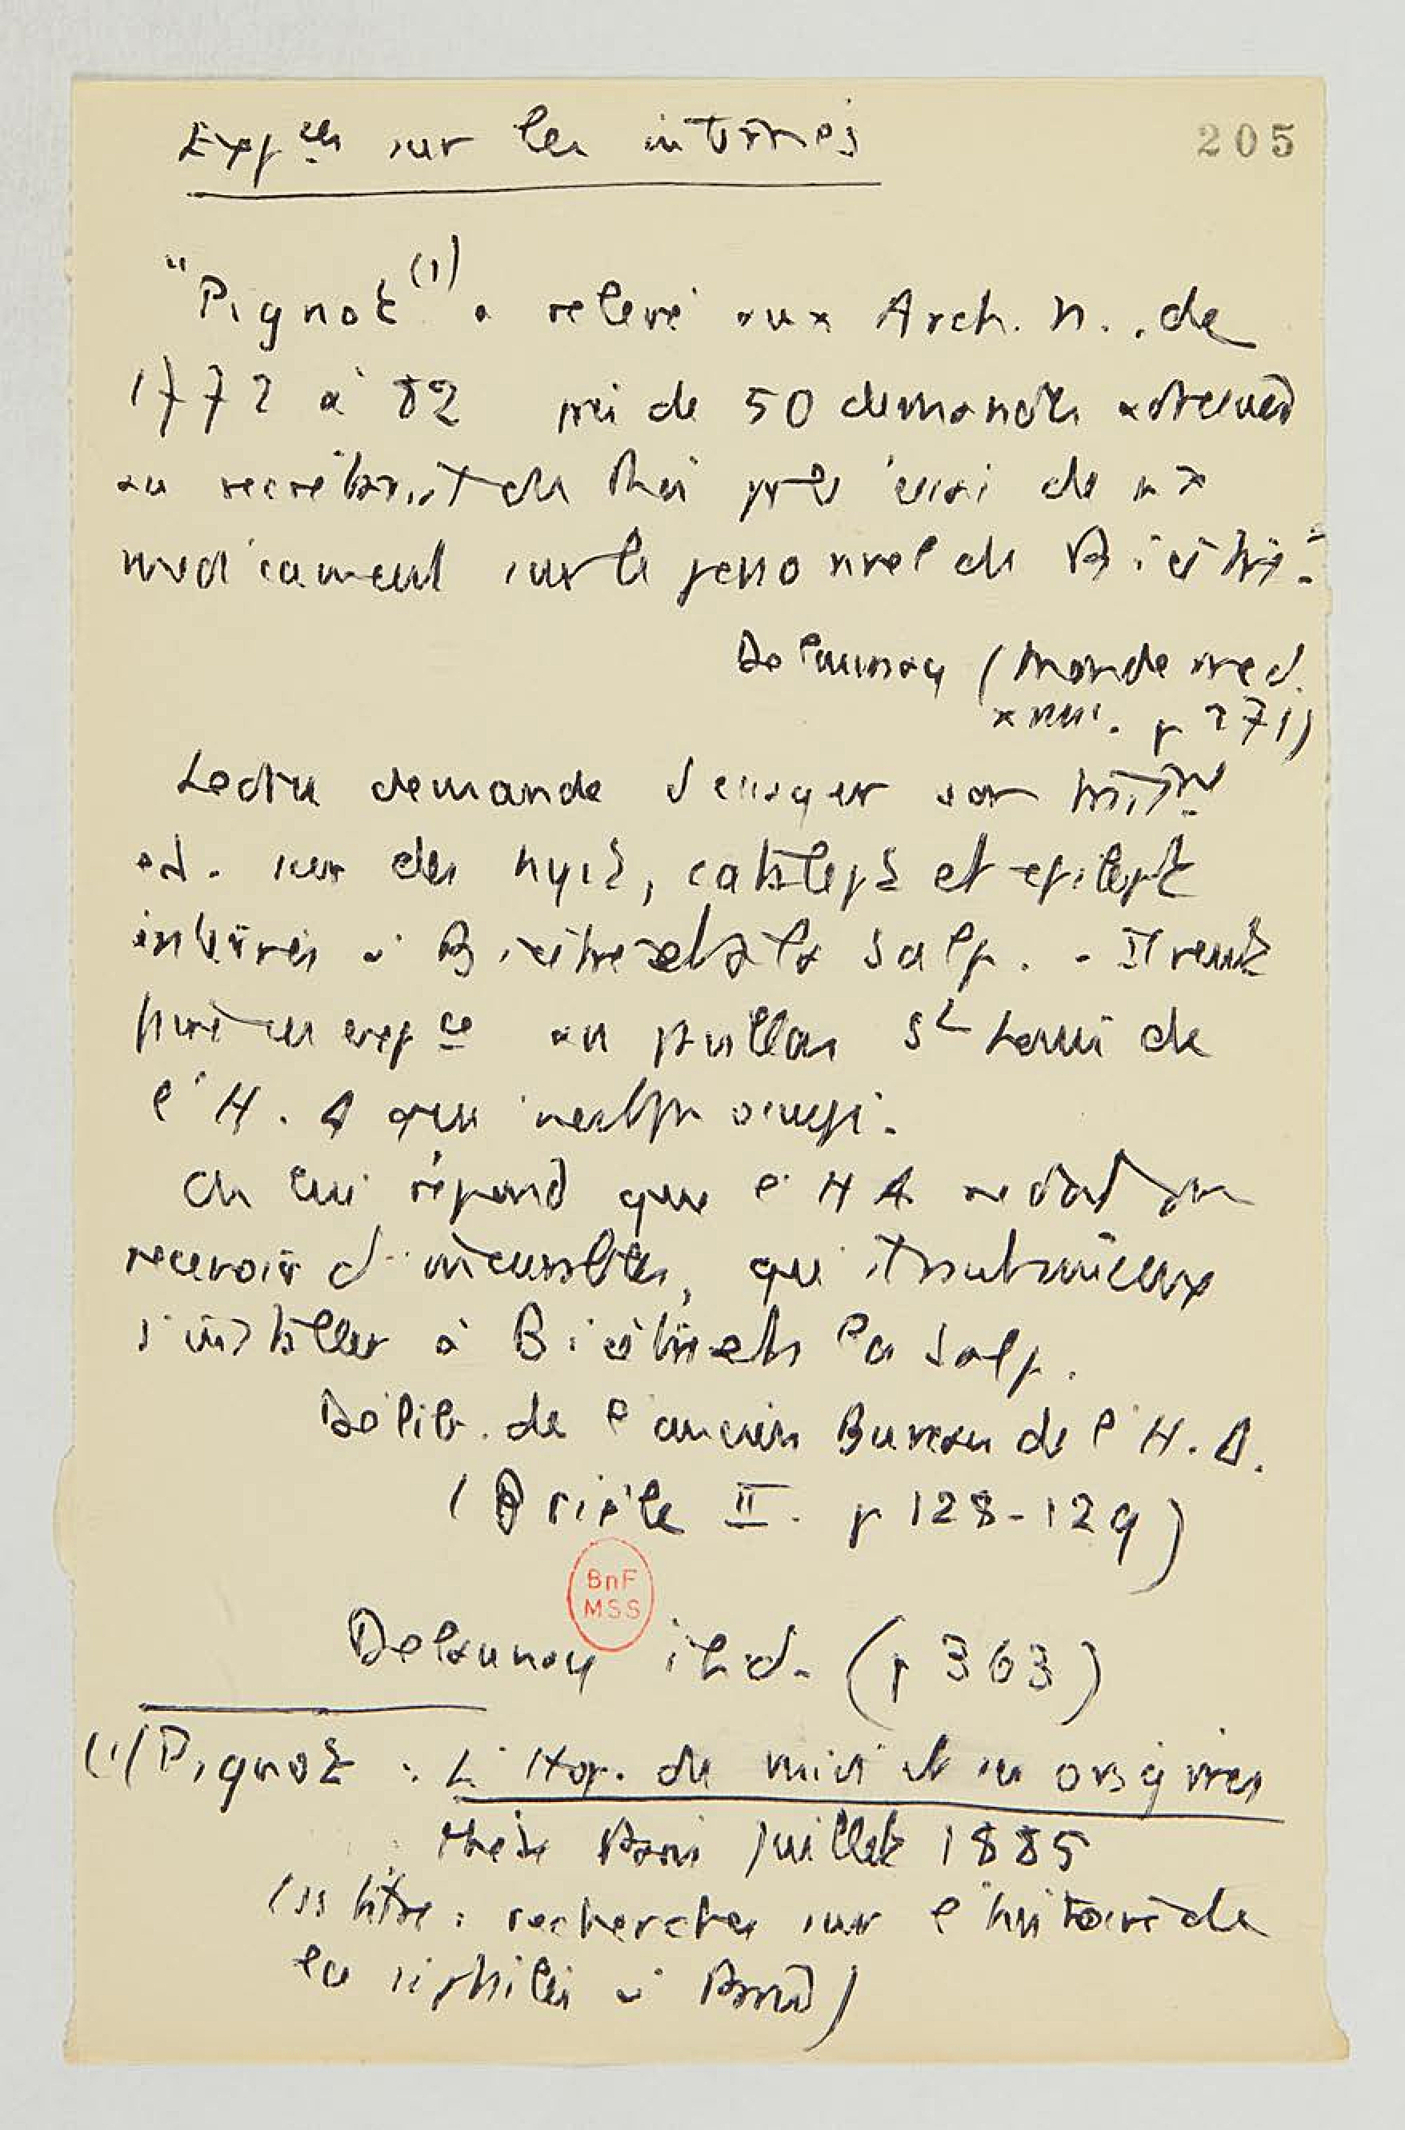 Expces sur les internés
205
"Pignot (1) a relevé aux Arch. N., de
1772 à 82 près de 50 demandes adressées
au secrétariat du Roi pr l'essai de
medicament sur le personnel de Bicêtre".
Delaunay (Monde med.
XVIIIe. p 271)
Ledru demande d'essayer son
el. sur des hyst, catalept et epilept
internés à Bicêtre et à la Salp. - Il veut
faire ces expce au pavillon St Louis de
l'H. D que n'est pas occupé.
On lui répond que l'H D ne doit pas
recevoir d'incurables, qui iraient mieux
s'installer à Bicêtre et à la Salp.
Délib. de l'ancien Bureau de l'H. D.
(Brièle II. p 128-129)
BnF
MSS
Delaunay ibid. (p 363)
(1) Pignot : L'Hop. du midi et ses origines
thèse Paris juillet 1885
(ss titre : recherches sur l'histoire de
la siphilis à Paris)